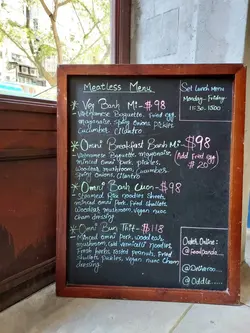 Meatless Menu
* Veg Banh Mi - $98
- Vietnamese Baguette, Fried egg,
mayonaise, Spring Onions, pickles
Cucumber, Cilantro
* Omni Breakfast Banh Mi - $98
- Vietnamese Baguette, mayonaise,
minced Omni pork, pickles,
Woodear mushroom, Cucumber,
Spring onions, Cilantro
(Add Fried egg
$20)
* Omni Banh Cuon - $98
- Steamed Rice noodles Sheets,
minced Omni pork, Fried shallots
Woodear mushroom, vegan nuoc
Cham dressing
* Omni Bun Thit - $118
- Minced omni pork, Woodear
mushroom, Cold vermicelli noodles,
Fresh herbs, roasted peanuts, Fried
Shallots, pickles, vegan nuoc Cham
dressing.
Set Lunch Menu
Monday - Friday
Order Online:
@foodpanda
@Deliveroo
@Oddle